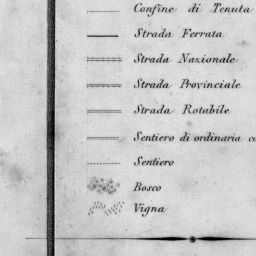 Confine di Tenuta
Strada Ferrata
Strada Nazionale
Strada Provinciale
Strada Rotabile
Sentiero di ordinaria
Sentiero
Bosco
Vigna